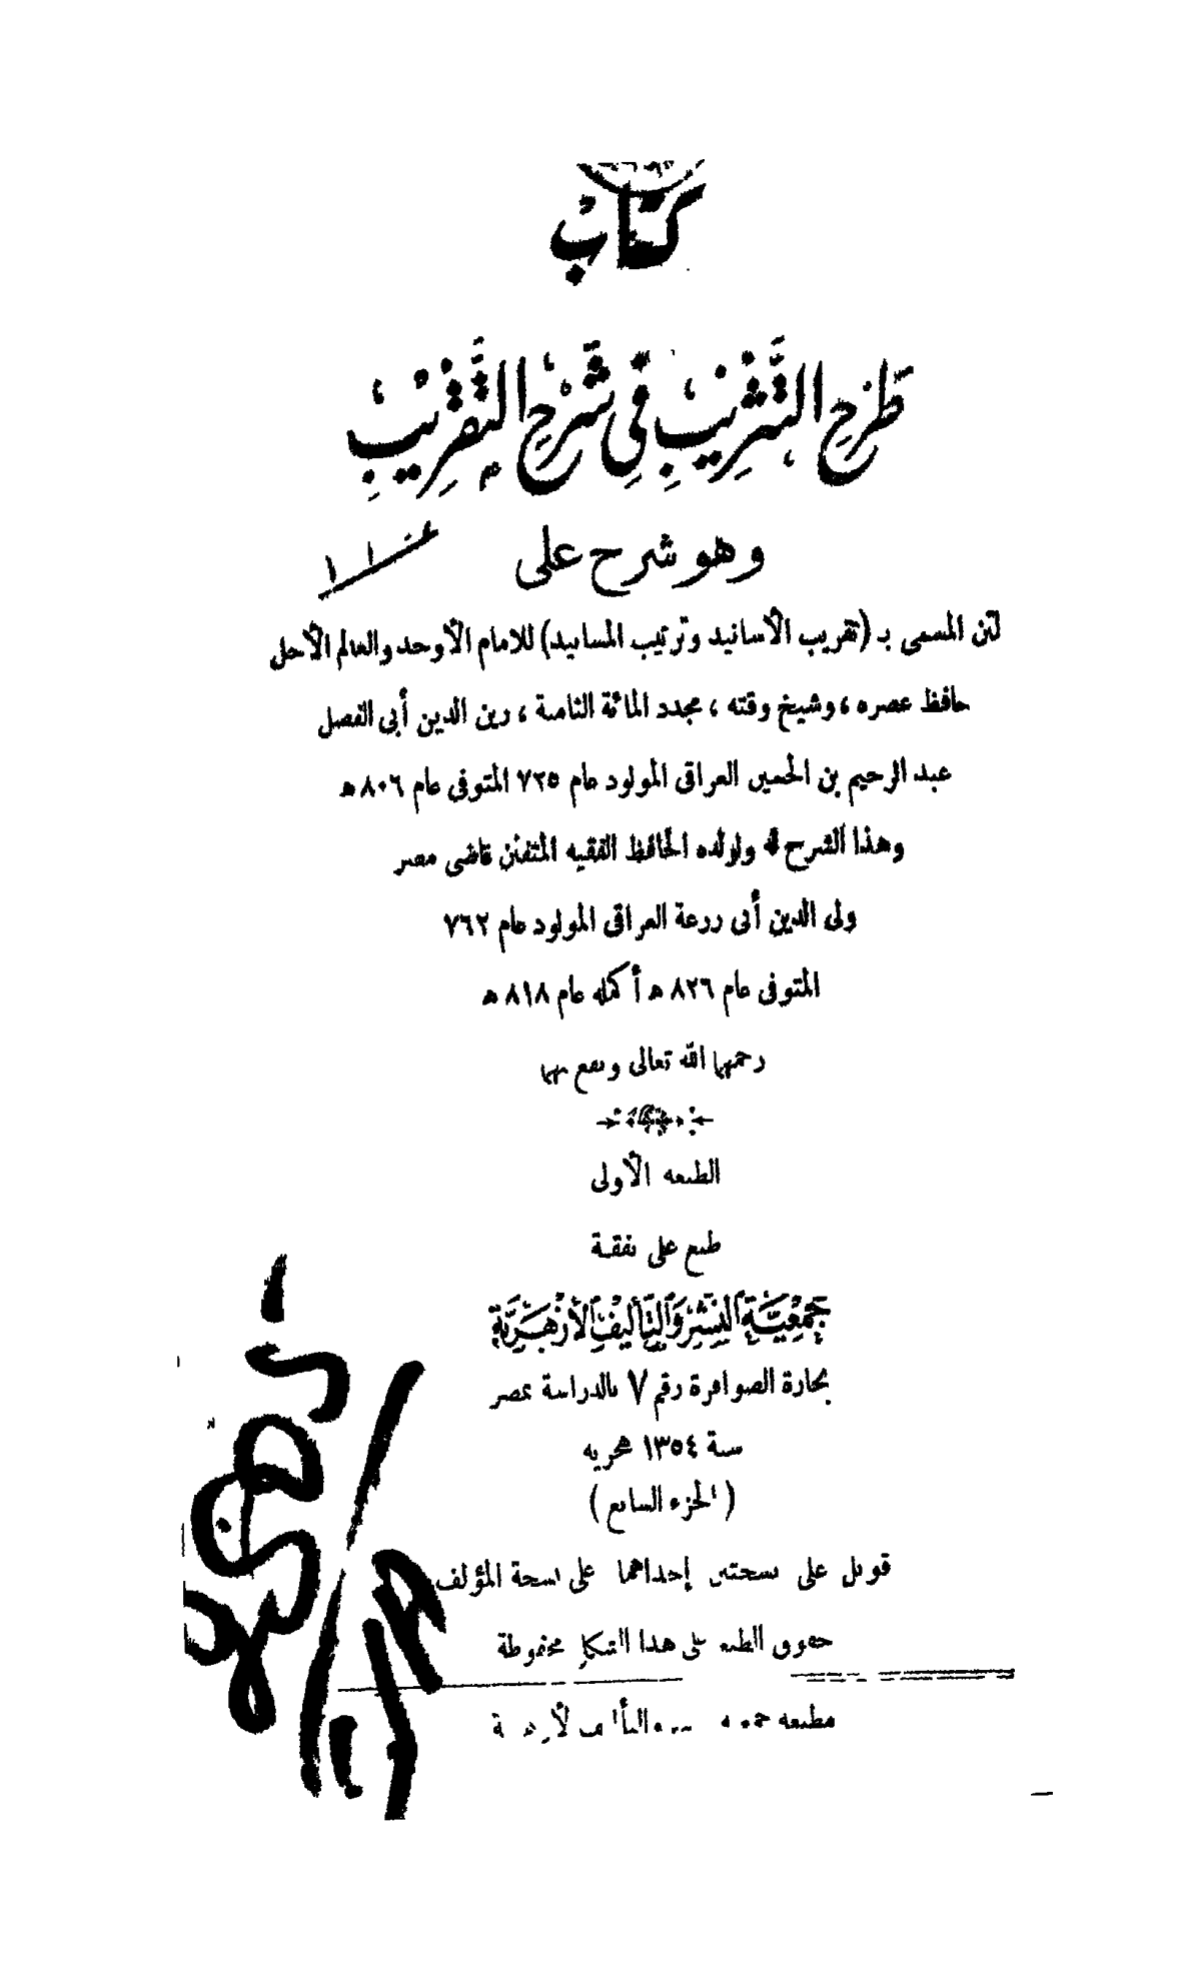 كتاب
طرح التثريب في شرح التقريب
وهو شرح على
لمتن المسمى بـ (تقريب الأسانيد وترتيب المسانيد) للامام الأوحد والعالم الأجل
حافظ عصره ، وشيخ وقته ، مجدد المائة الثامنة ، زين الدين أبى الفضل
عبد الرحيم بن الحسين العراقى المولود عام ٧٢٥ المتوفى عام ٨٠٦ هـ
وهذا الشرح له ولولده الحافظ الفقيه المتفنن قاضى مصر
ولى الدين أبى زرعة العراقى المولود عام ٧٦٢
المتوفى عام ٨٢٦ هـ أكمله عام ٨١٨ هـ
رحمهما الله تعالى ونفع بهما
الطبعة الأولى
طبع على نفقة
جمعية النشر والتأليف الأزهرية
بحارة الصوافرة رقم ٧ بالدراسة بمصر
سنة ١٣٥٤ هجرية
( الجزء السابع )
قوبل على نسختين إحداهما على نسخة المؤلف
حقوق الطبع على هذا الشكل محفوظة
مطبعة